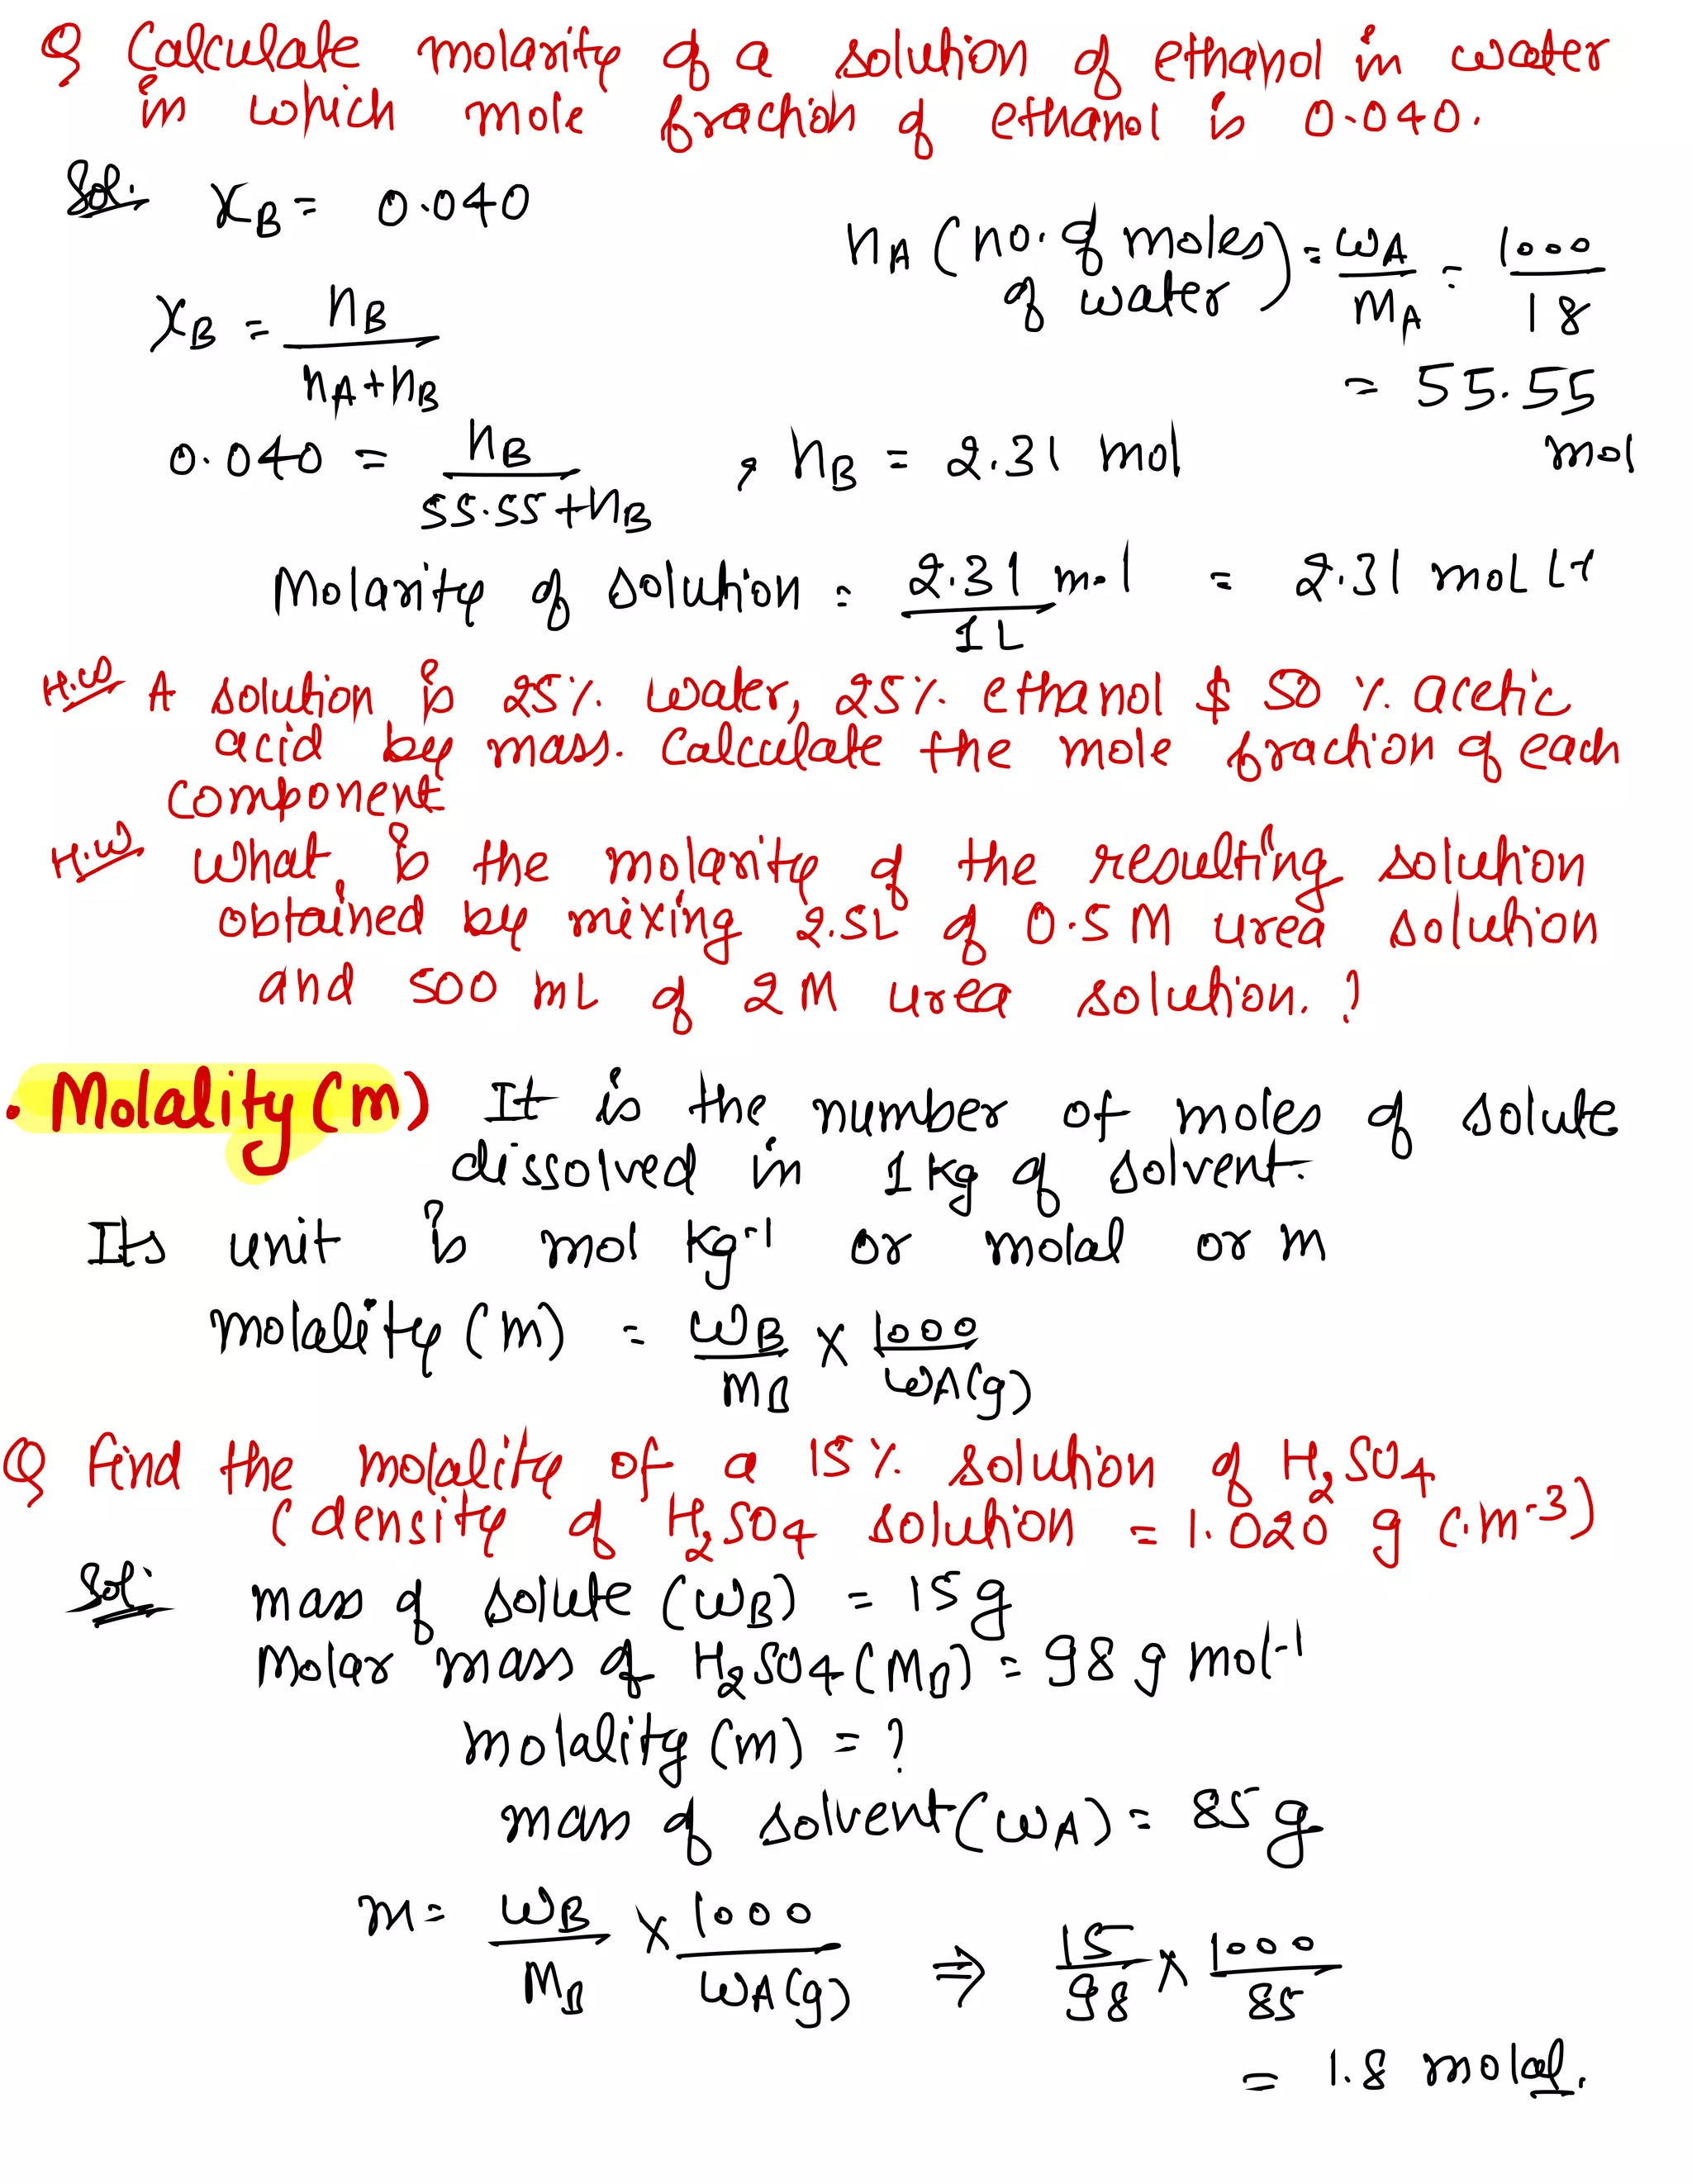 Q Calculate molarity of a solution of ethanol in water
in which mole fraction of ethanol is 0.040.
Sol. xB = 0.040
nA (no. of moles of water) = wA/MA = 1000/18
= 55.55 mol
xB = nB/nA+nB
0.040 = nB/55.55+nB , nB = 2.31 mol
Molarity of solution = 2.31 mol/1L = 2.31 mol L-1
H.W A solution is 25% water, 25% ethanol $ 50 % acetic
acid by mass. Calculate the mole fraction of each
component
H.W What is the molarity of the resulting solution
obtained by mixing 2.5L of 0.5 M urea solution
and 500 mL of 2M urea solution. ?
• Molality (m) It is the number of moles of solute
dissolved in 1 kg of solvent.
Its unit is mol kg-1 or molal or m
molality (m) = wB/MB × 1000/wA(g)
Q Find the molality of a 15 % solution of H2SO4
(density of H2SO4 solution = 1.020 g c.m-3)
Sol. mass of solute (wB) = 15g
Molar mass of H2SO4 (MB) = 98 g mol-1
molality (m) = ?
mass of solvent (wA) = 85 g
m = wB/MB × 1000/wA(g) ⇒ 15/98 × 1000/85
= 1.8 molal.